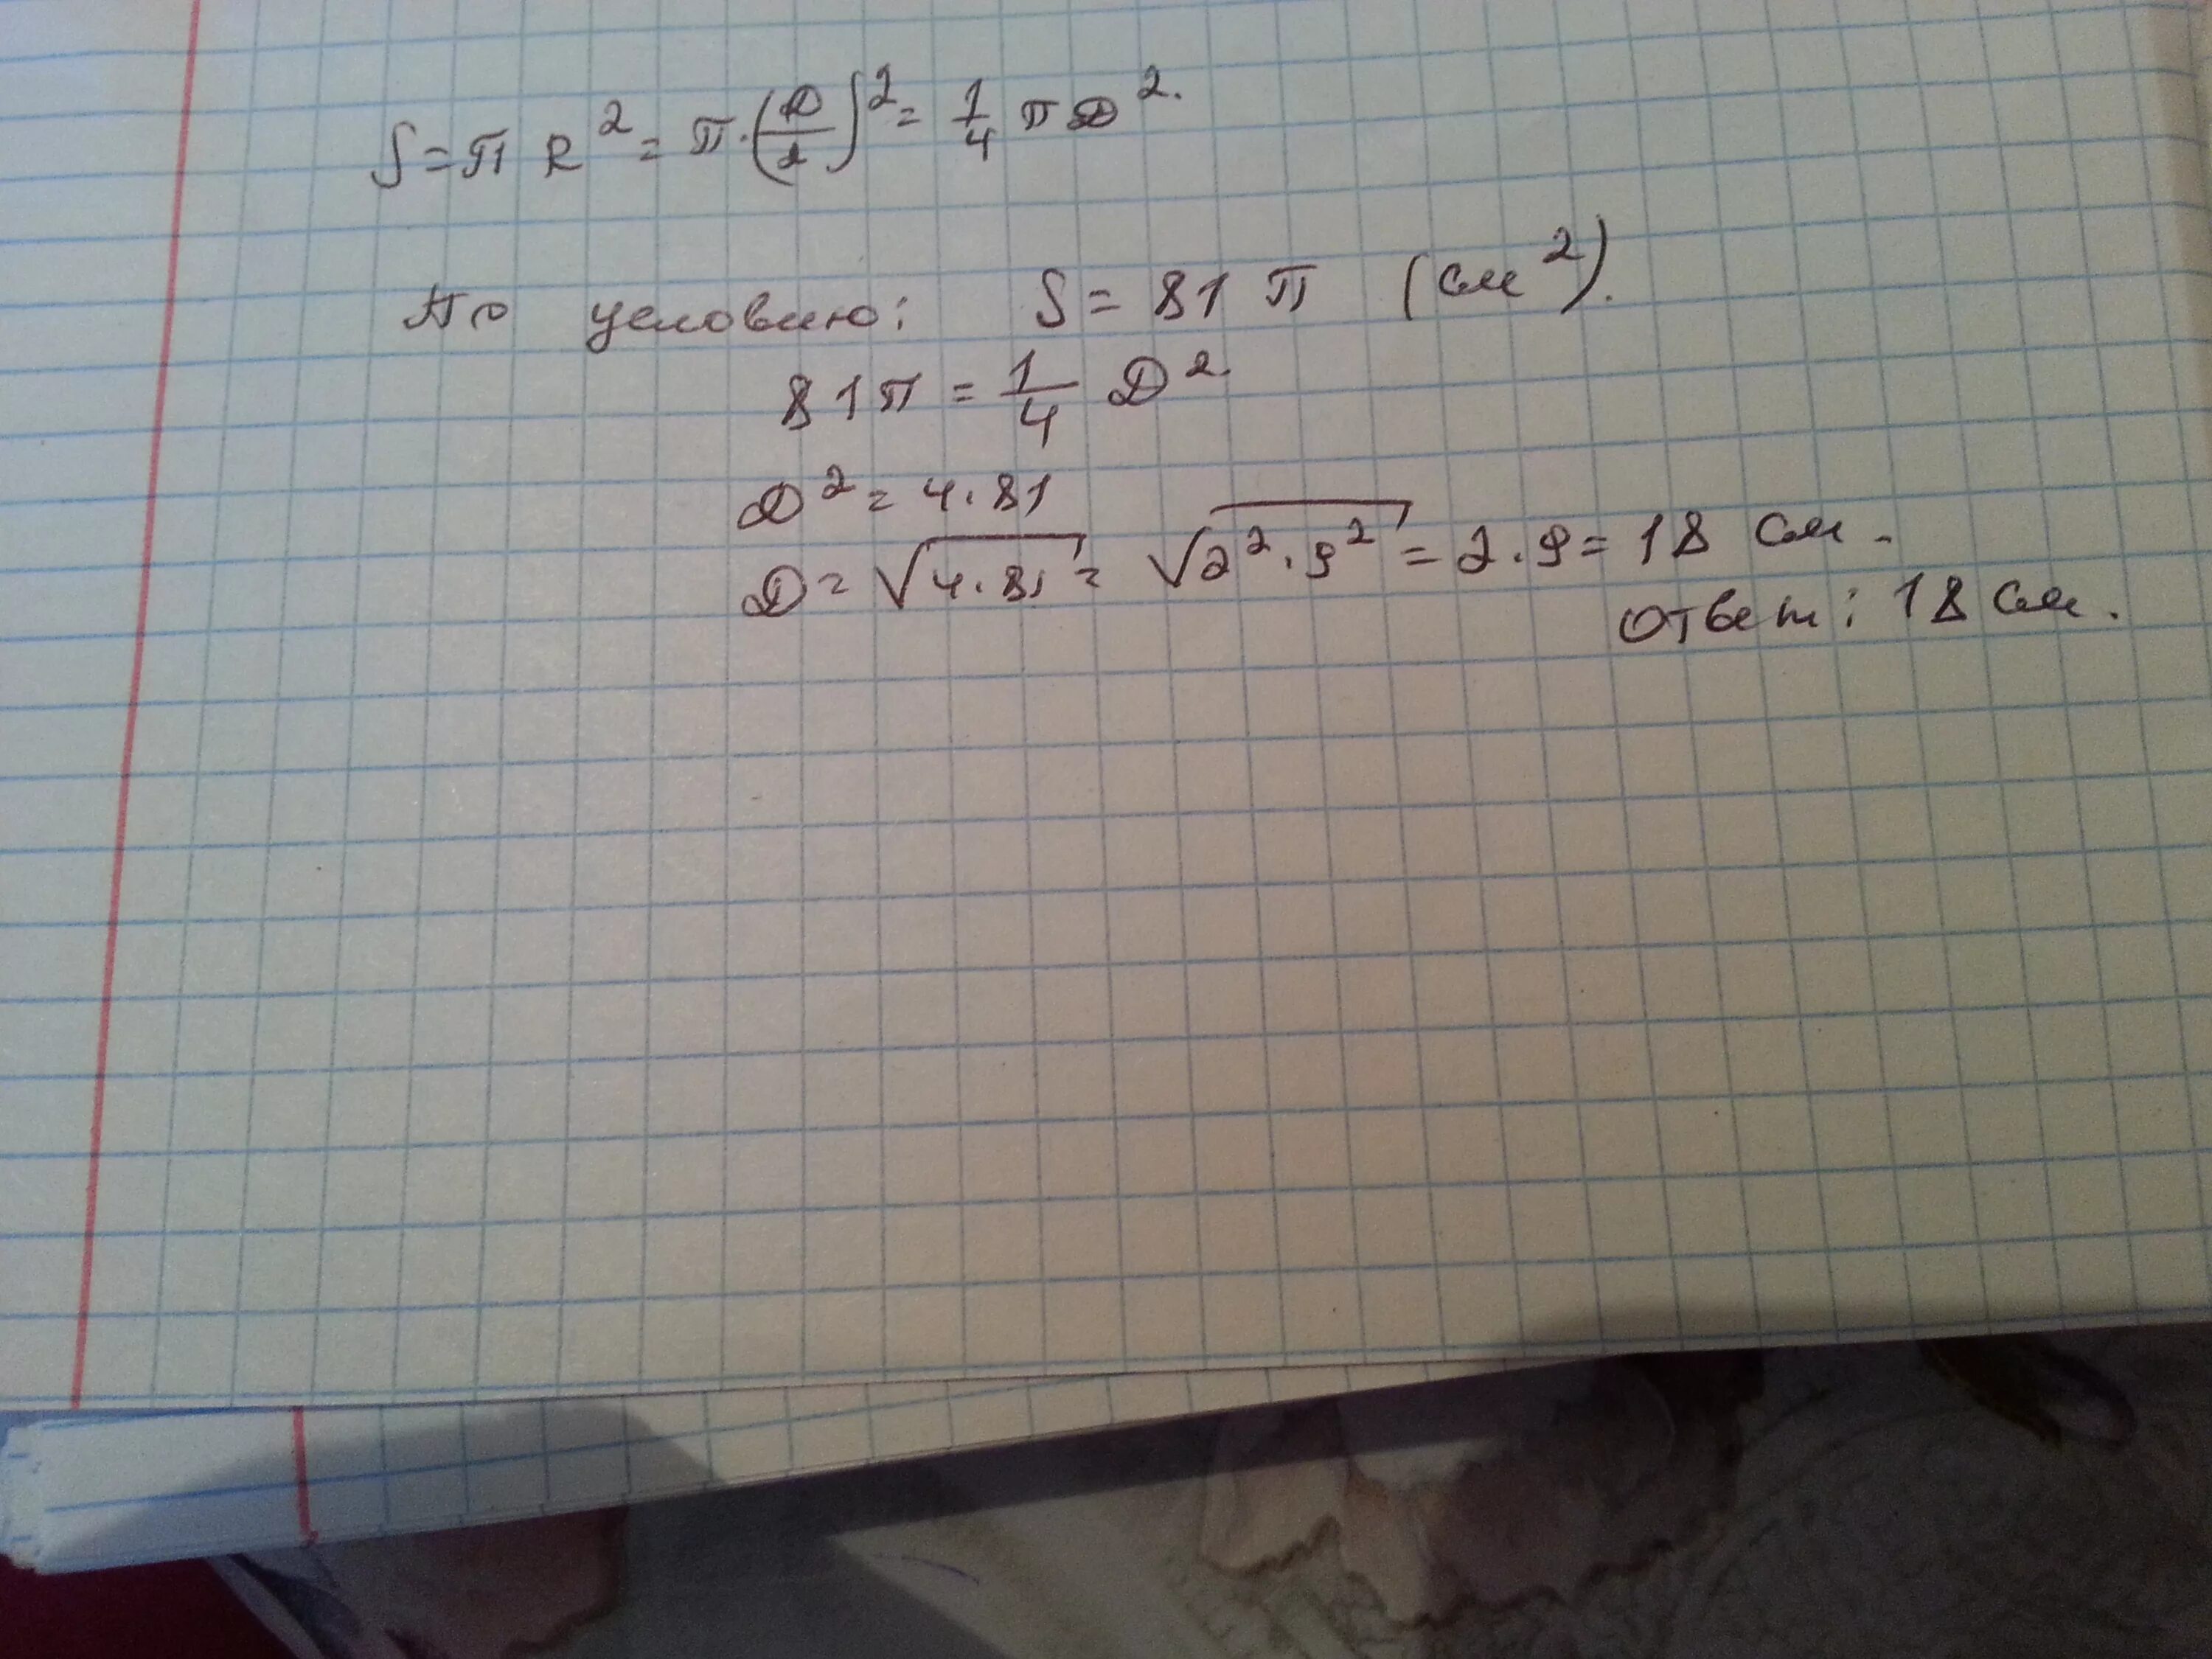 S = π R² = π · (D/2)² = 1/4 π D².
По условию: S = 81 π (см²).
81π = 1/4 D².
D² = 4 · 81
D = √(4 · 81) = √(2² · 9²) = 2 · 9 = 18 см.
Ответ: 18 см.